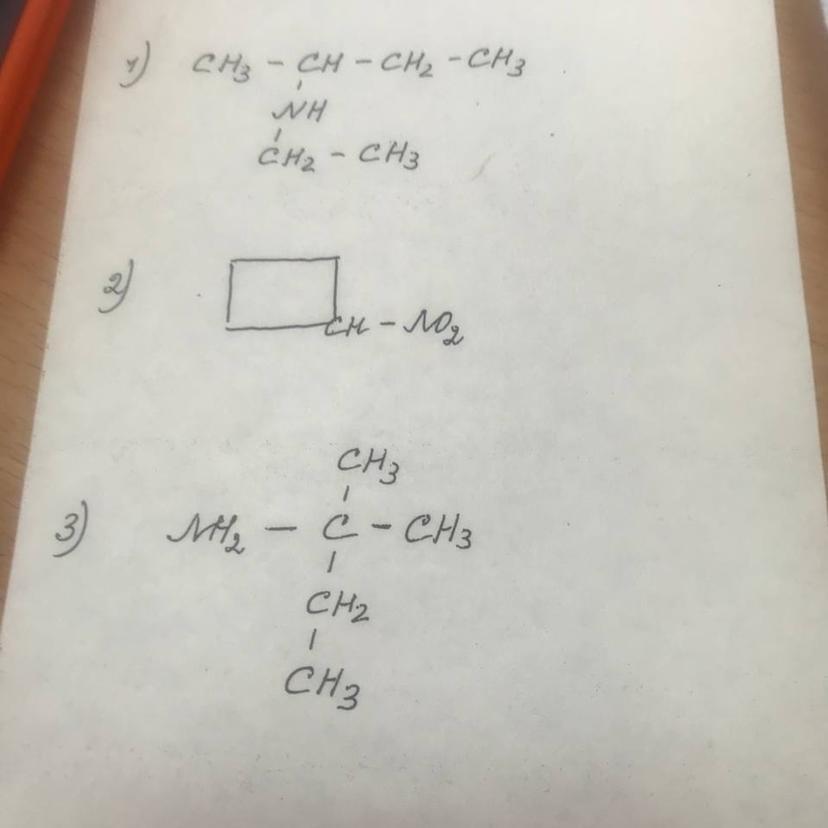 1) CH3 - CH - CH2 - CH3
NH
CH2 - CH3
2)
CH - NO2
CH3
3) NH2 - C - CH3
CH2
CH3